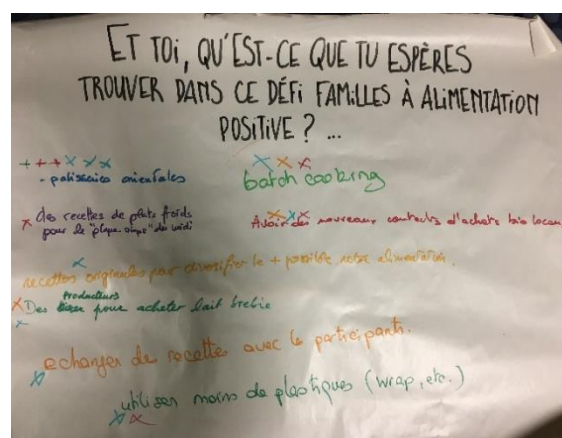 ET TOI, QU'EST-CE QUE TU ESPÈRES
TROUVER DANS CE DÉFI FAMILLES À ALIMENTATION
POSITIVE ? ...
+ + + x x x
- patisseries orientales
x x x
batch cooking
x des recettes de plats froids
pour le "pique-nique" du midi
Avoir des nouveaux contacts d'achats bio locaux
x
recettes originales pour diversifier le + possible notre alimentation.
producteurs
x Des pour acheter lait brebis
x
echanger de recettes avec le participants.
x
utiliser moins de plastiques (wrap, etc.)
x x